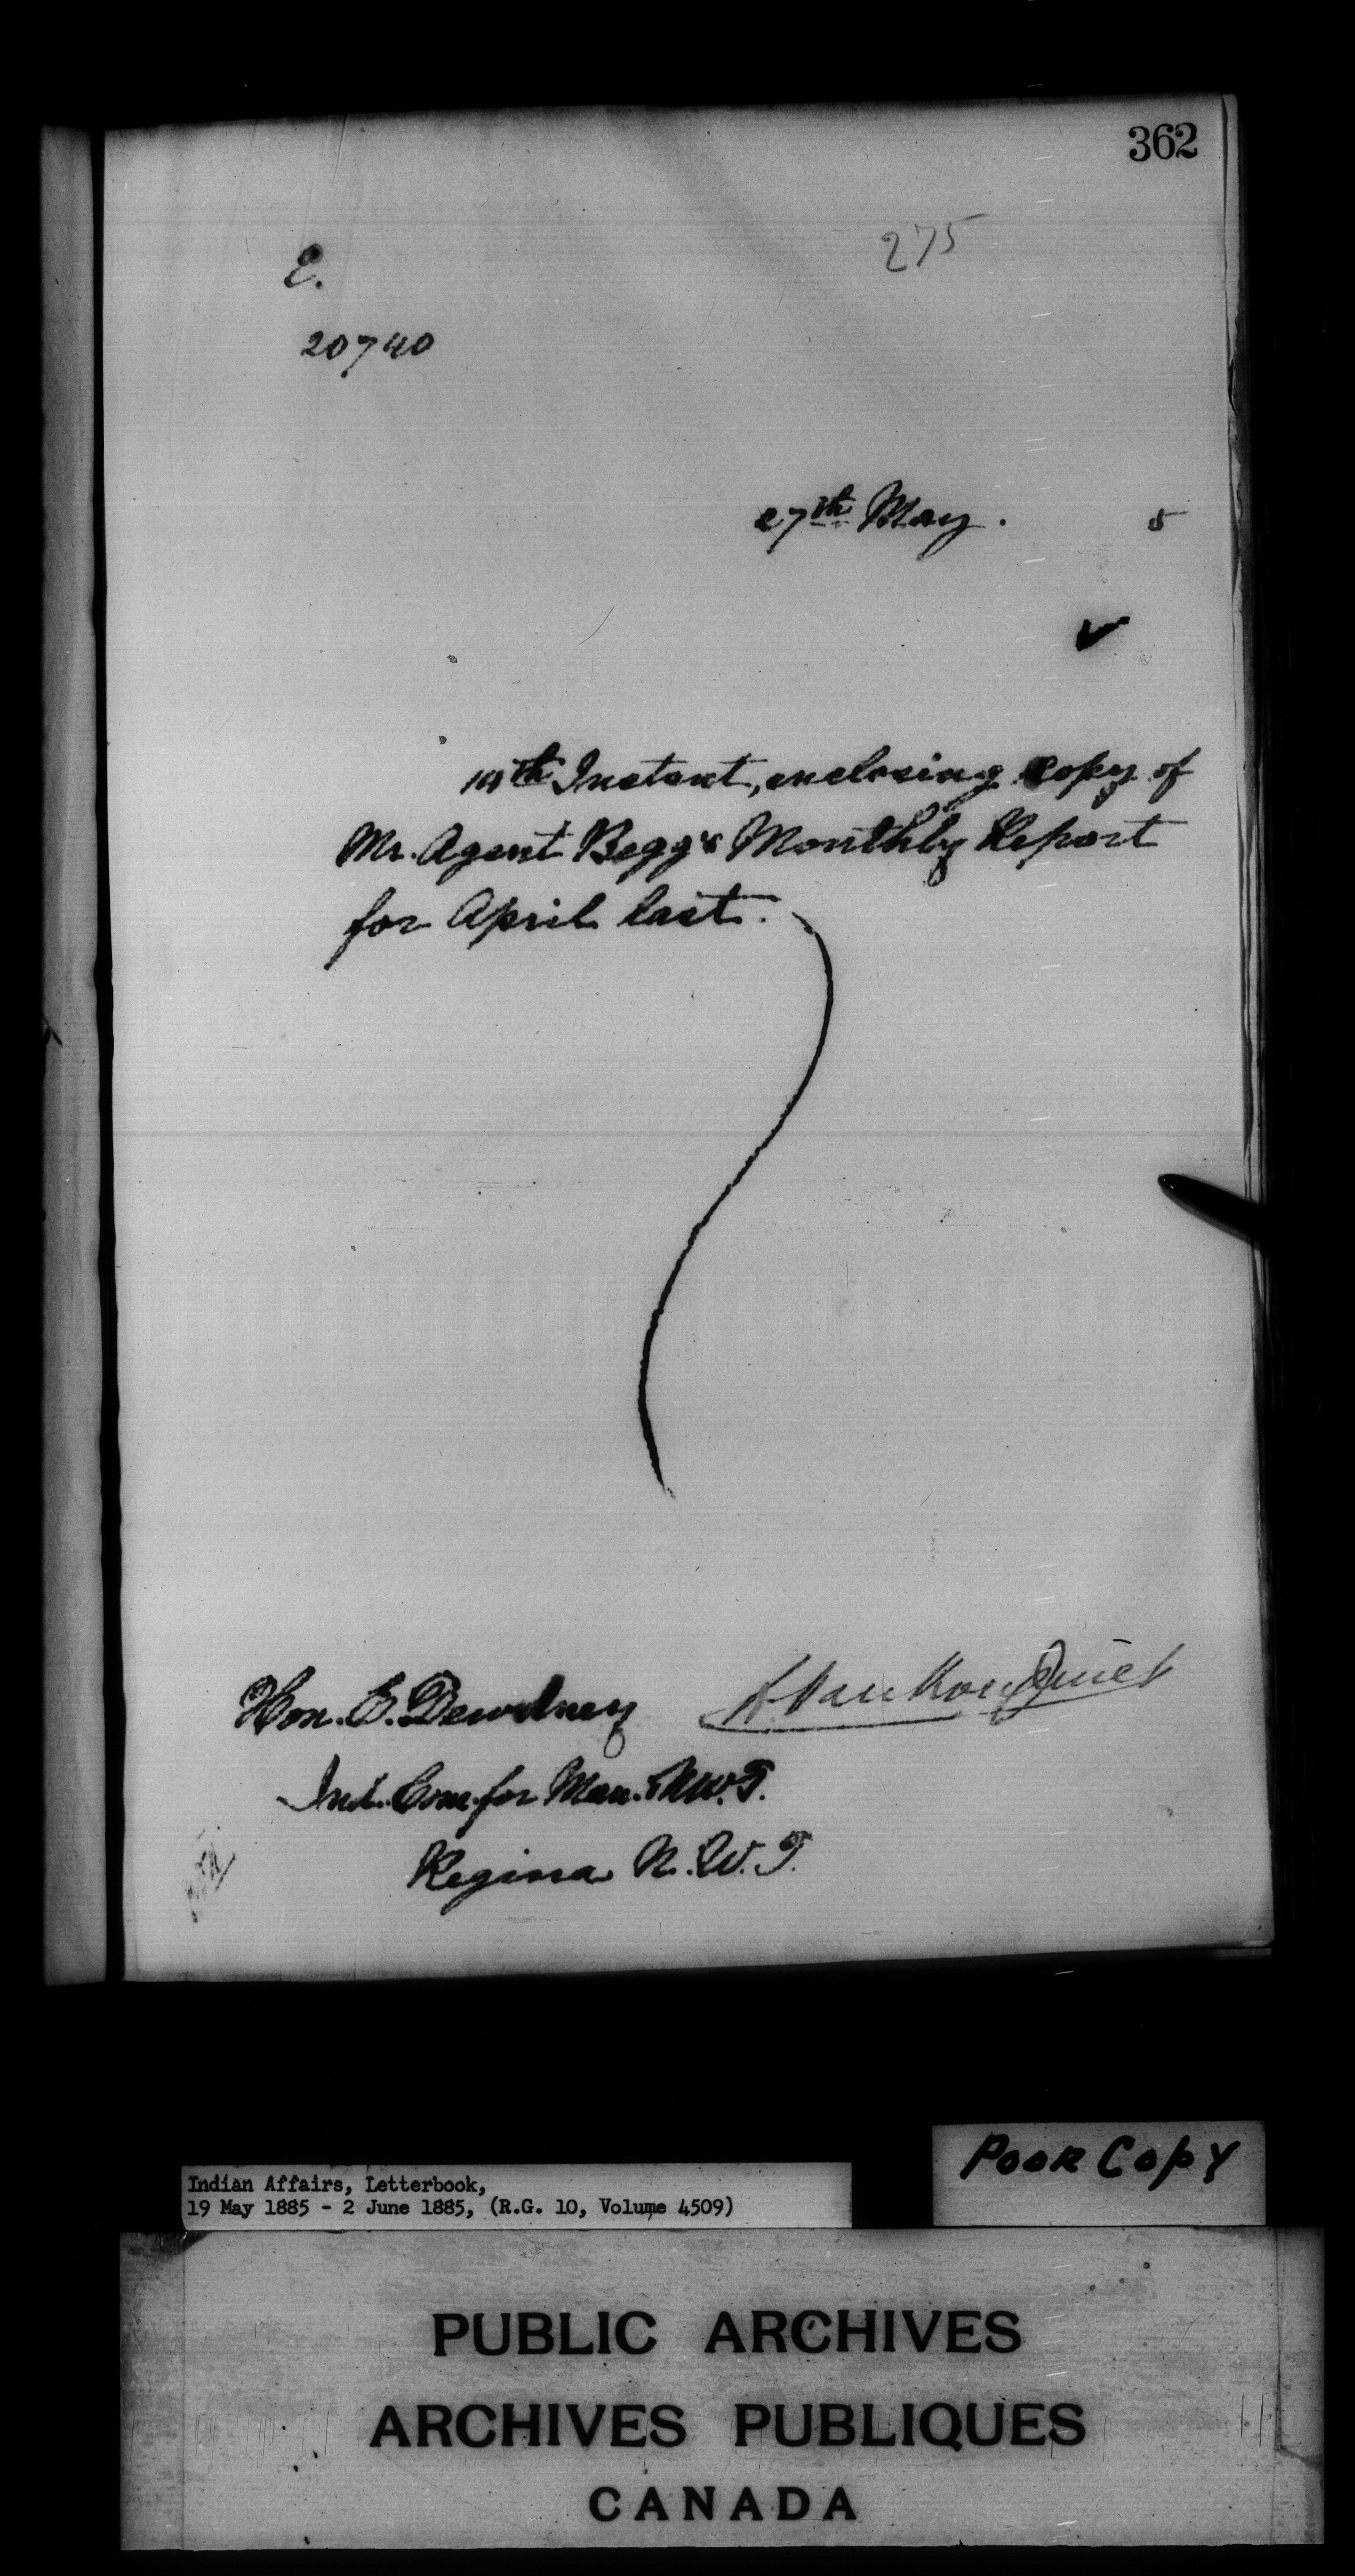 362
275
E.
20740
27th May. 5
Instant, enclosing copy of
Mr. Agent Begg's Monthly Report
for April last.
Hon. E. Dewdney L. VanKoughnet
Ind. Com. for Man. & N.W.T.
Regina N.W.T.
Poor Copy
Indian Affairs, Letterbook,
19 May 1885 - 2 June 1885, (R.G. 10, Volume 4509)
PUBLIC ARCHIVES
ARCHIVES PUBLIQUES
CANADA